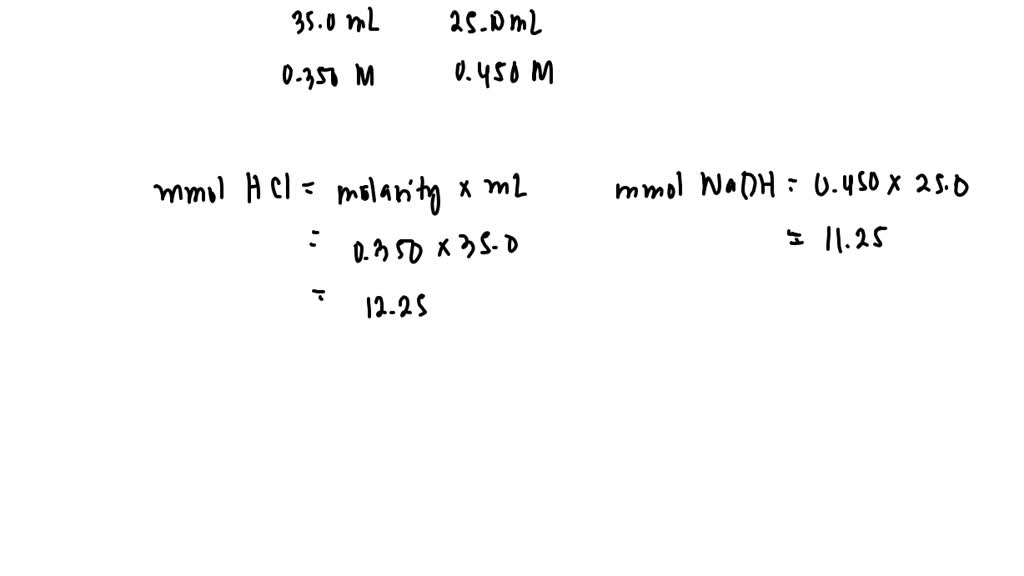 35.0 mL 25.0 mL
0.350 M 0.450 M
mmol HCl = molarity x mL
= 0.350 x 35.0
= 12.25
mmol NaOH = 0.450 x 25.0
= 11.25